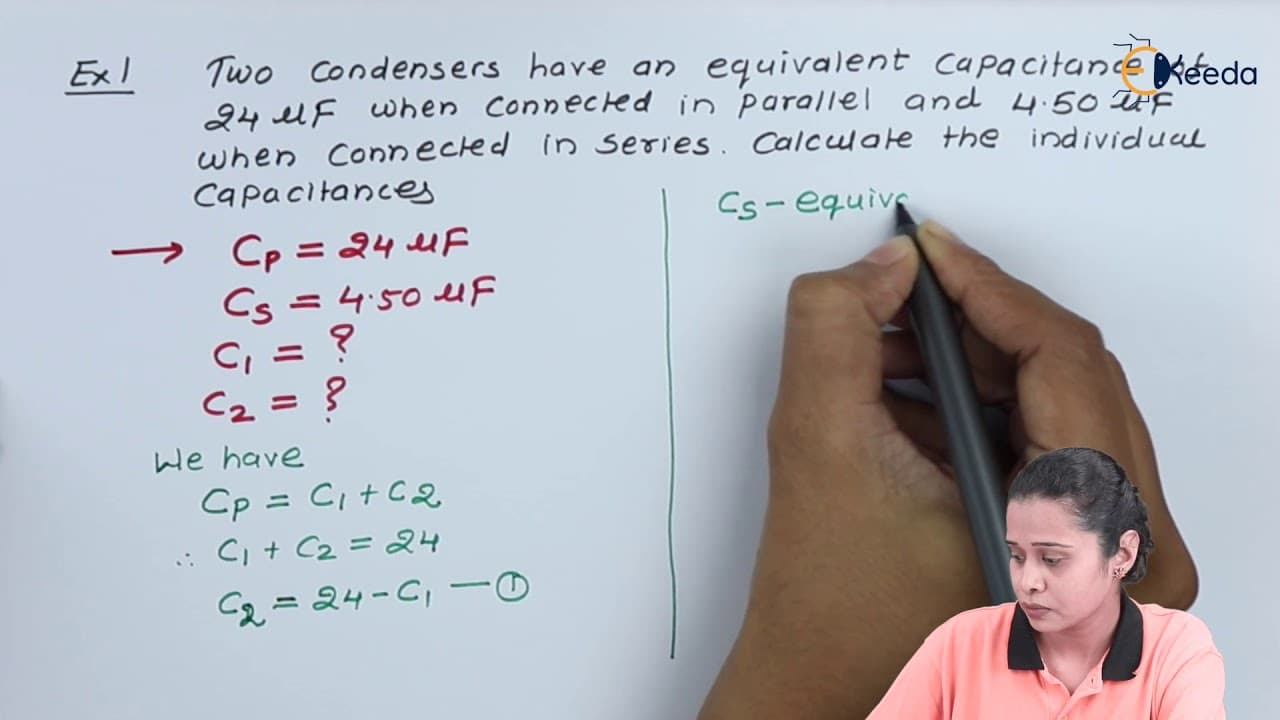 Ex 1 Two condensers have an equivalent capacitance of
24 μF when connected in parallel and 4.50 μF
when connected in series. Calculate the individual
capacitances
→ Cp = 24 μF
Cs = 4.50 μF
C1 = ?
C2 = ?
We have
Cp = C1 + C2
∴ C1 + C2 = 24
C2 = 24 - C1 — ①
Cs - equiva
Ekeeda